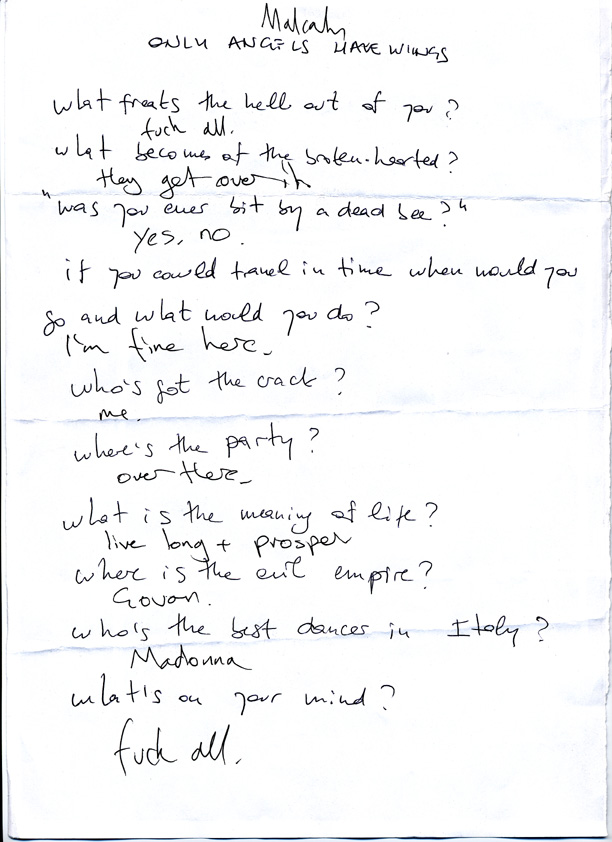 Malcolm
ONLY ANGELS HAVE WINGS
what freaks the hell out of you?
fuck all.
what becomes of the broken-hearted?
they get over it
"was you ever bit by a dead bee?"
yes, no.
if you could travel in time when would you
go and what would you do?
I'm fine here_
who's got the crack?
me.
where's the party?
over there_
what is the meaning of life?
live long + prosper
where is the evil empire?
Govan.
who's the best dancer in Italy?
Madonna
what's on your mind?
fuck all.